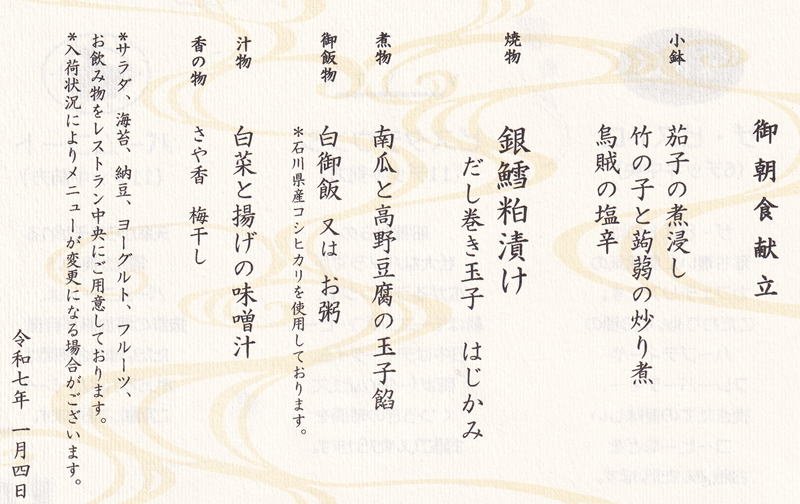 御朝食献立
小鉢
茄子の煮浸し
竹の子と蒟蒻の炒り煮
烏賊の塩辛
焼物
銀鱈粕漬け
だし巻き玉子 はじかみ
煮物
南瓜と高野豆腐の玉子餡
御飯物
白御飯 又は お粥
*石川県産コシヒカリを使用しております。
汁物
白菜と揚げの味噌汁
香の物
さや香 梅干し
*サラダ、海苔、納豆、ヨーグルト、フルーツ、
お飲み物をレストラン中央にご用意しております。
*入荷状況によりメニューが変更になる場合がございます。
令和七年 一月四日